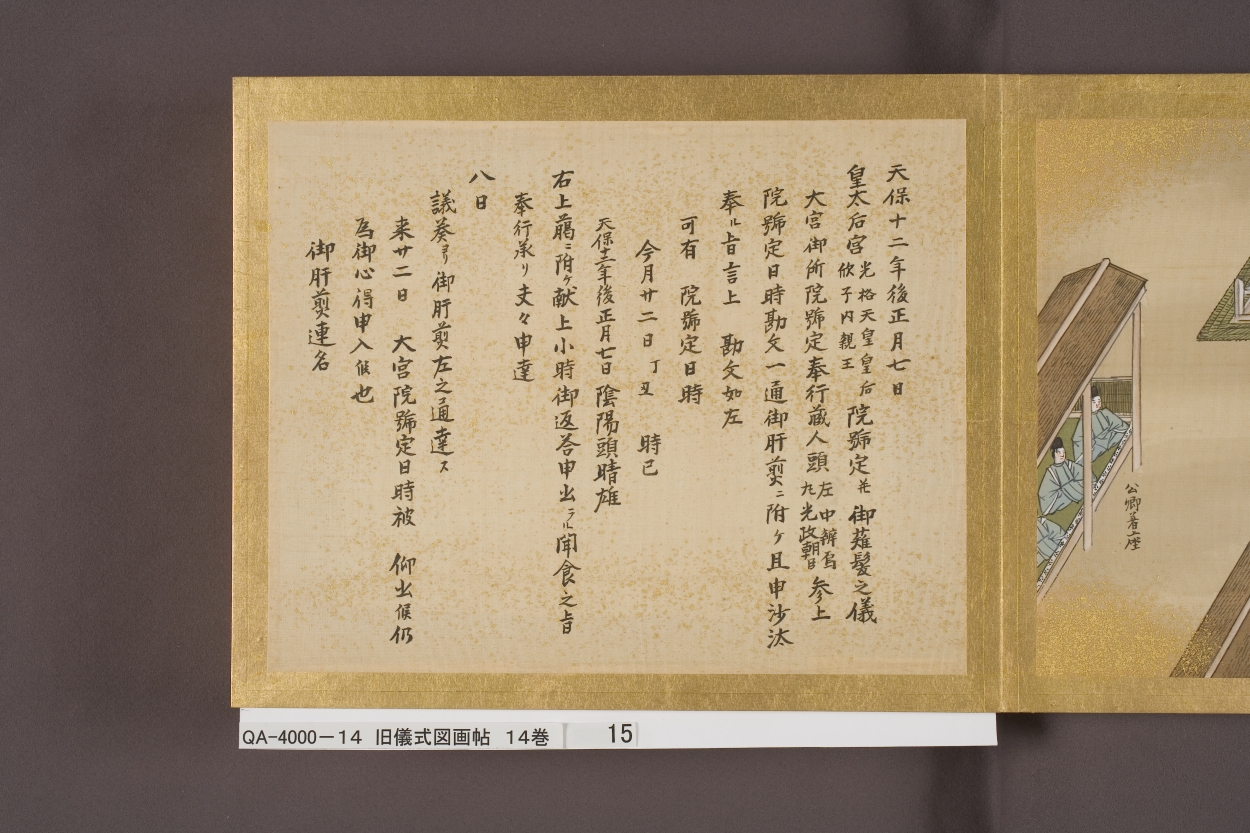 天保十二年後正月七日
皇太后宮光格天皇皇后欣子内親王院號定并御薙髪之儀
大宮御所院號定奉行蔵人頭左中辨光政朝臣参上
院號定日時勘文一通御肝煎ニ附ケ且申沙汰
奉ル旨言上　勘文如左
可有　院號定日時
今月廿二日　丁丑　時巳
天保十二年後正月七日　陰陽頭晴雄
右上﨟ニ附ケ献上小時御返答申出ラル聞食之旨
奉行承リ夫々申達
八日
議奏ヨリ御肝煎左之通達ス
来廿二日　大宮院號定日時被　仰出候仍
為御心得申入候也
御肝煎連名
公卿着座
QA-4000-14　旧儀式図画帖　14巻　15